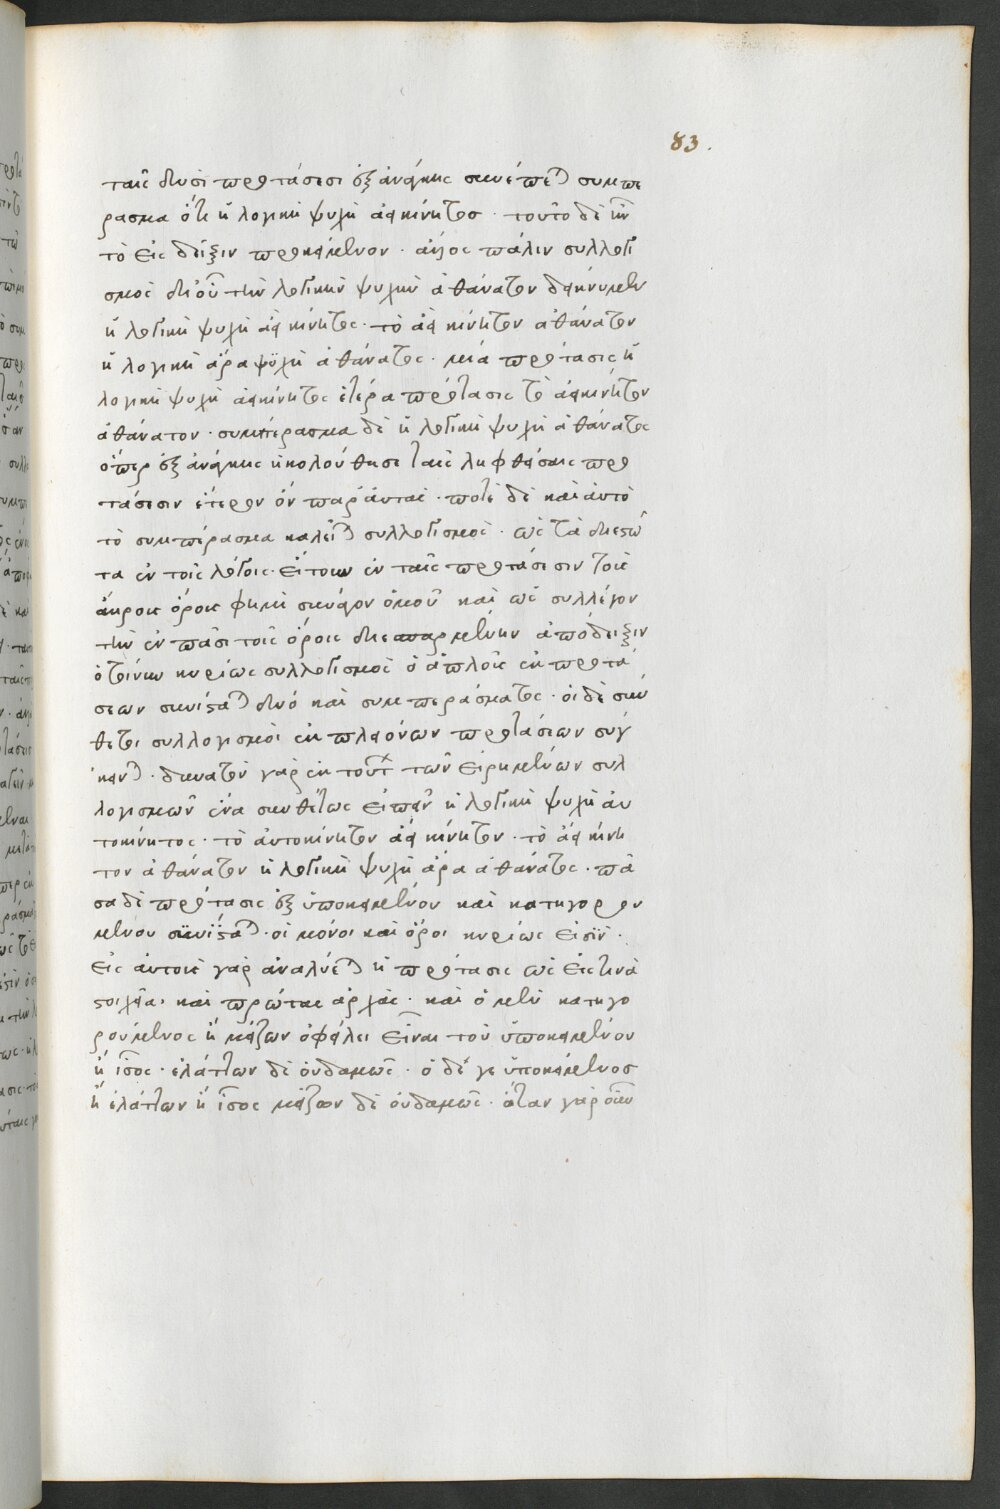 83.
ταῖς δυσὶ προτάσεσι ἐξ ἀνάγκης συνέπεται συμπε
ρασμα ὅτι ἡ λογικὴ ψυχὴ ἀεικίνητος · τοῦτο δὲ ἦν
τὸ εἰς δεῖξιν προκείμενον · ἄλλος πάλιν συλλογι
σμὸς δι οὗ τὴν λογικὴν ψυχὴν ἀθάνατον δεικνύομεν
ἡ λογικὴ ψυχὴ ἀεικίνητος · τὸ ἀεικίνητον ἀθάνατον
ἡ λογικὴ ἄρα ψυχὴ ἀθάνατος · μία πρότασις ἡ
λογικὴ ψυχὴ ἀεικίνητος ἑτέρα πρότασις τὸ ἀεικίνητον
ἀθάνατον · συμπέρασμα δὲ ἡ λογικὴ ψυχὴ ἀθάνατος
ὅπερ ἐξ ἀνάγκης ἠκολούθησε ταῖς ληφθείσαις προ
τάσεσιν ἕτερον ὂν παρ αὐτάς · ποτὲ δὲ καὶ αὐτὸ
τὸ συμπέρασμα καλεῖται συλλογισμὸς · ὡς τὰ διεστῶ
τα ἐν τοῖς λόγοις · εἴτουν ἐν ταῖς προτάσεσιν τοῖς
ἄκροις ὅροις φημὶ συνάγον ὁμοῦ καὶ ὡς συλλέγον
τὴν ἐν πᾶσι τοῖς ὅροις διεσπαρμένην ἀπόδειξιν
ὁ τοίνυν κυρίως συλλογισμὸς ὁ ἁπλοῦς ἐκ προτά
σεων συνίσταται δύο καὶ συμπεράσματος · οἱ δὲ σύν
θετοι συλλογισμοὶ ἐκ πλειόνων προτάσεων σύγ
κεινται · δυνατὸν γὰρ ἐκ τούτων τῶν εἰρημένων συλ
λογισμῶν ἕνα συνθέτως εἰπεῖν ἡ λογικὴ ψυχὴ αὐ
τοκίνητος · τὸ αὐτοκίνητον ἀεικίνητον · τὸ ἀεικίνη
τον ἀθάνατον ἡ λογικὴ ψυχὴ ἄρα ἀθάνατος · πᾶ
σα δὲ πρότασις ἐξ ὑποκειμένου καὶ κατηγορου
μένου συνίσταται · οἱ μόνοι καὶ ὅροι κυρίως εἰσὶν ·
εἰς αὐτοὺς γὰρ ἀναλύεται ἡ πρότασις ὡς εἰς τινὰ
στοιχεῖα · καὶ πρώτας ἀρχάς · καὶ ὁ μὲν κατηγο
ρούμενος ἢ μείζων ὀφείλει εἶναι τοῦ ὑποκειμένου
ἢ ἴσος · ἐλάττων δὲ οὐδαμῶς · ὁ δέ γε ὑποκείμενος
ἢ ἐλάττων ἢ ἴσος μείζων δὲ οὐδαμῶς · ὅταν γὰρ οὖν